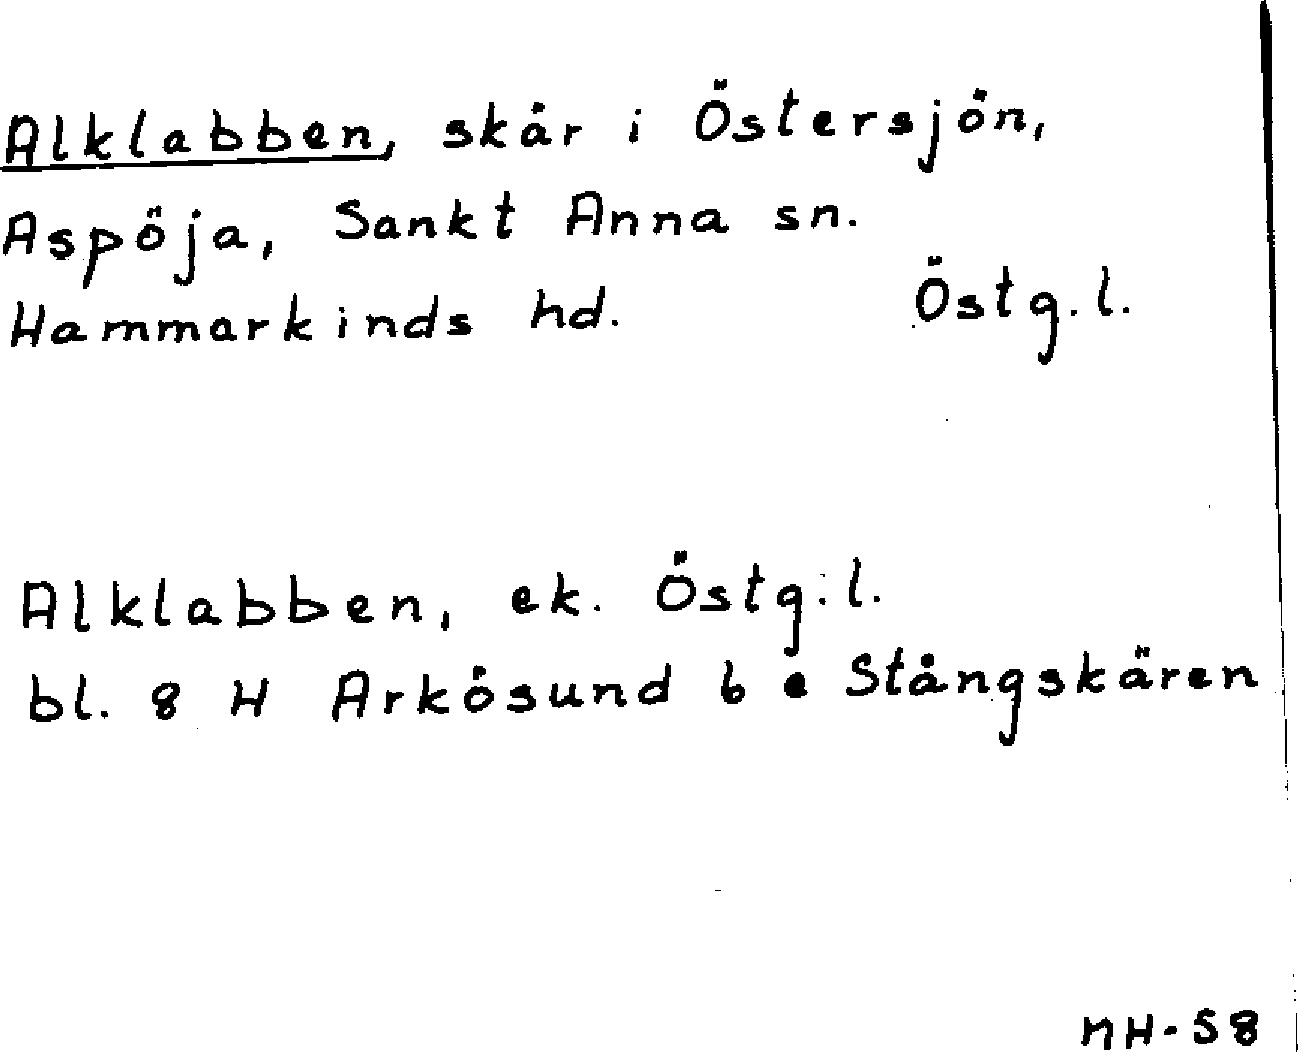 Alklabben, skär i Östersjön,
Aspöja, Sankt Anna sn.
Hammarkinds hd. Östg.l.
Alklabben, ek. Östg.l.
bl. 8 H Arkösund 6 e Stångskären
NH-58